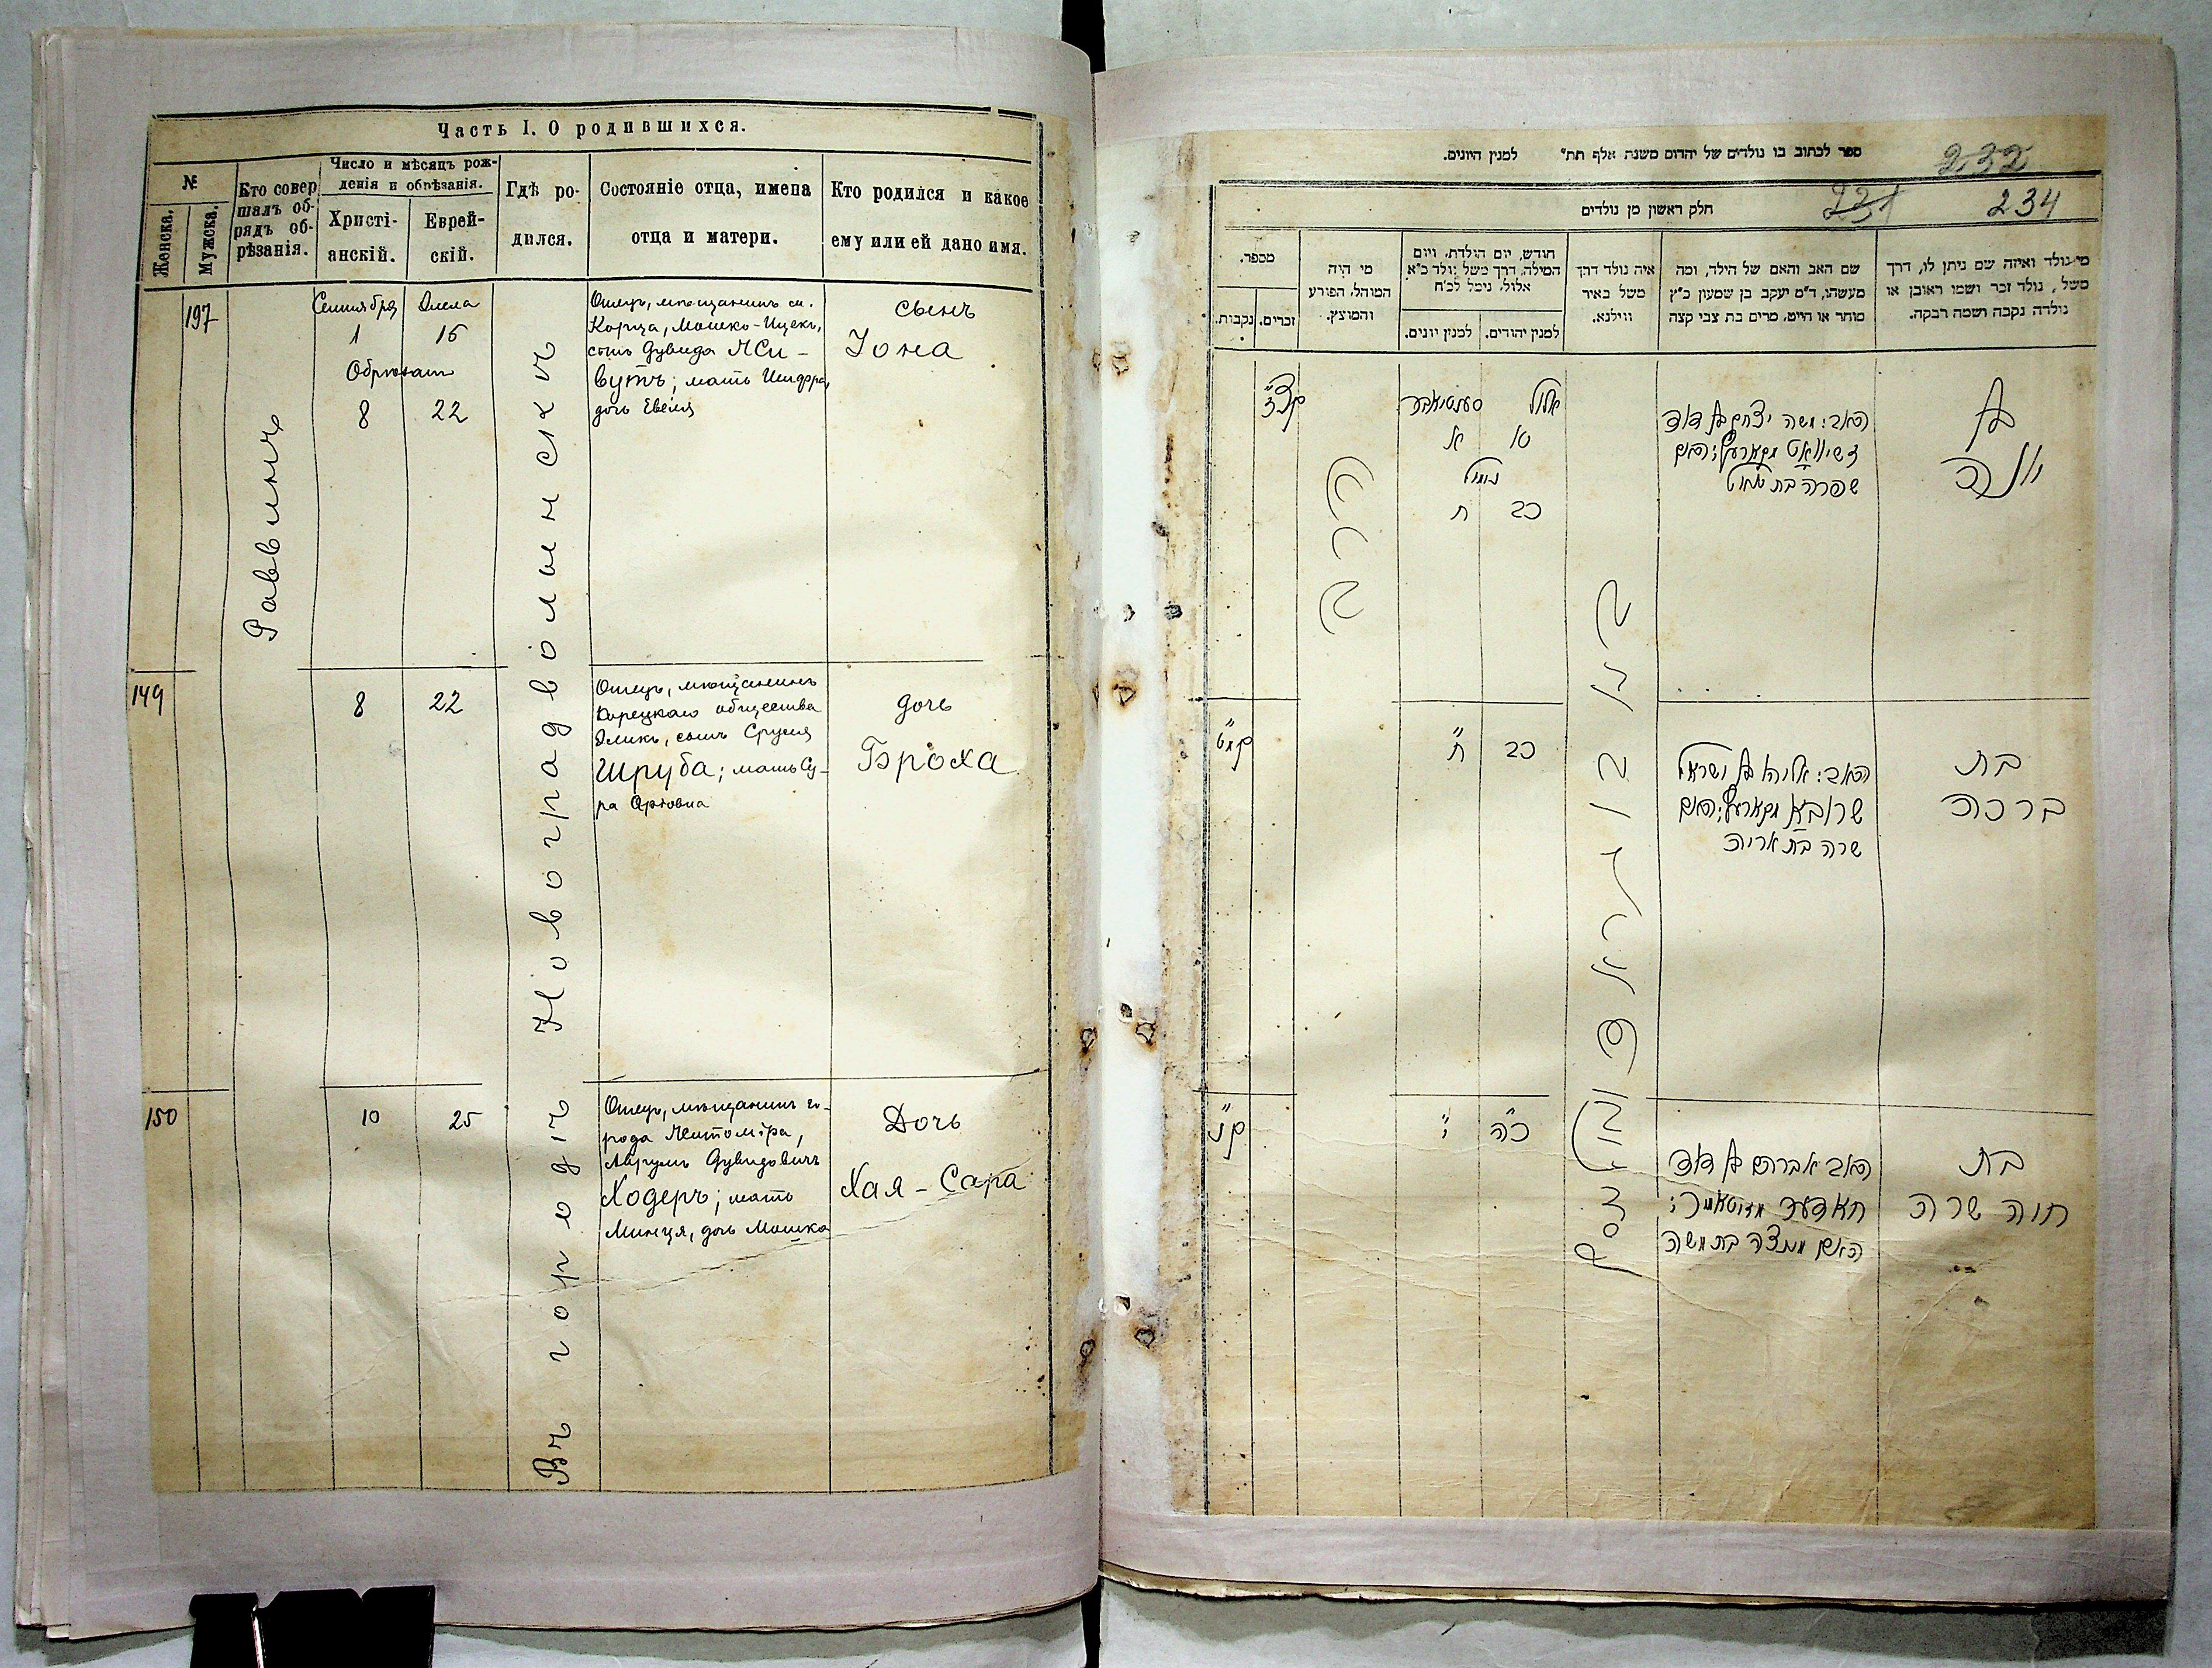 Часть I. О родившихся.
№
Женска.
Мужска.
Кто совер
шалъ об-
рядъ об-
рѣзанія.
Число и мѣсяцъ рож-
денія и обрѣзанія.
Христі-
анскій.
Еврей-
скій.
Гдѣ ро-
дился.
Состояніе отца, имена
отца и матери.
Кто родился и какое
ему или ей дано имя.
197
Раввинъ
Сентября
Элела
1
15
Обрѣзанъ
8
22
Въ городѣ Новоградволынскѣ
Отецъ, мѣщанинъ м.
Корца, Мошко-Ицекъ,
сынъ Дувида
мать Шифра,
дочь
сынъ
Іона
149
8
22
Отецъ, мѣщанинъ
Корецкаго общества
Эликъ, сынъ Сруля
Шруба; мать Су-
ра
дочь
Броха
150
10
25
Отецъ, мѣщанинъ го-
рода Житоміра,
Аврумъ Дувидовичъ
Ходеръ; мать
Минця, дочь Мошка
Дочь
Хая-Сара
ספר לכתוב בו נולדים של יהדום משנת אלף תת״ למנין היונים.
232
חלק ראשון מן נולדים
231
234
מי נולד ואיזה שם ניתן לו, דרך
משל, נולד זכר ושמו ראובן או
נולדה נקבה ושמה רבקה.
שם האב והאם של הילד, ומה
מעשהו, ד״מ יעקב בן שמעון כ״ץ
סוחר או חייט, מרים בת צבי קצה
איה נולד דרך
משל באיר
ווילנא.
חודש, יום הולדת, ויום
המילה, דרך משל נולד כ״א
אלול, נימל לכ״ח
למנין יהודים.
למנין יונים.
מי היה
המוהל, הפורע
והמוצץ.
מספר.
זכרים.
נקבות.
בן
יונה
האב: משה יצחק בן דוד
מקארעץ; האם
שפרה בת
אלול
סעפטיאבער
טו
א
נימול
כב
ח
הרב
קצז
בת
ברכה
האב: אליהו בן ישראל
שרובא מקארעץ; האם
שרה בת אריה
כב
ח
קמט
בת
חוה שרה
האב אברהם בן דוד
האם מינצה בת משה
כה
י
קנ